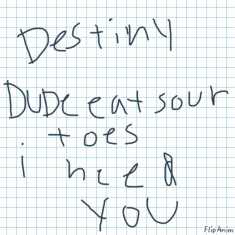 Destiny
DUDe eat sour
toes
i need
YOU
FlipAnim